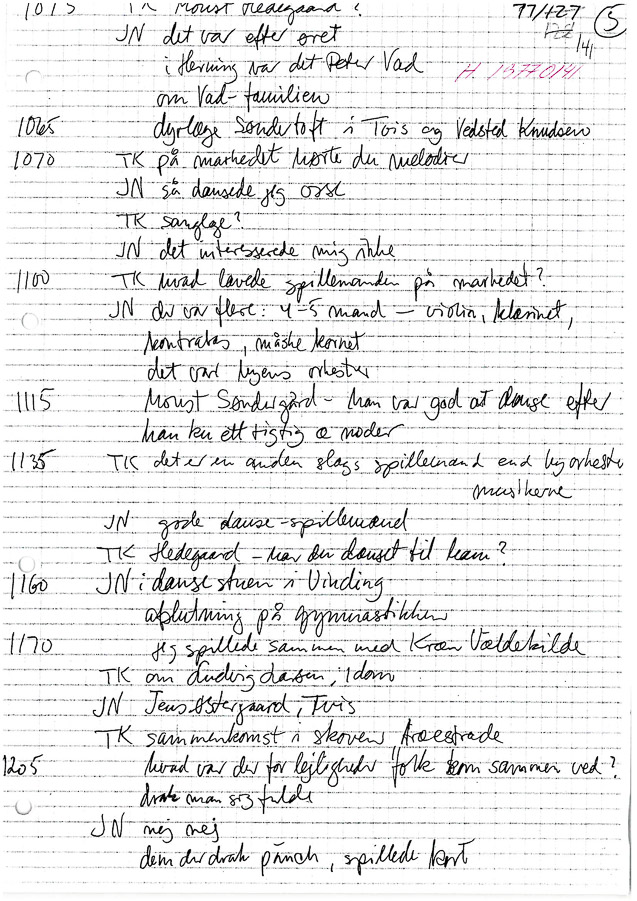 1015 TK Moust Hedegaard? 77/127 5
JN det var efter øret /41
i Herning var det Peter Vad H. 15770/41
om Vad-familien
1065 dyrlæge Søndertoft i Tvis og Vedsted Knudsen
1070 TK på markedet hørte du melodier
JN så dansede jeg osse
TK sanglege?
JN det interesserede mig ikke
1100 TK hvad lavede spillemanden på markedet?
JN der var flere: 4-5 mand – violin, klarinet,
kontrabas, måske kornet
det var byens orkester
1115 Moust Søndergård – han var god at danse efter
han ku ett rigtig æ noder
1135 TK det er en anden slags spillemand end byorkester
musikerne
JN gode danse-spillemænd
TK Hedegaard – har du danset til ham?
1160 JN i dansestuen i Vinding
afslutning på gymnastikken
1170 jeg spillede sammen med Kræn Vældekilde
TK om Ludvig Larsen, Idom
JN Jens Østergaard, Tvis
TK sammenkomst i skoven træestrade
1205 hvad var der for lejligheder folk kom sammen ved?
drak man sig fulde
JN nej nej
dem der drak punch, spillede kort